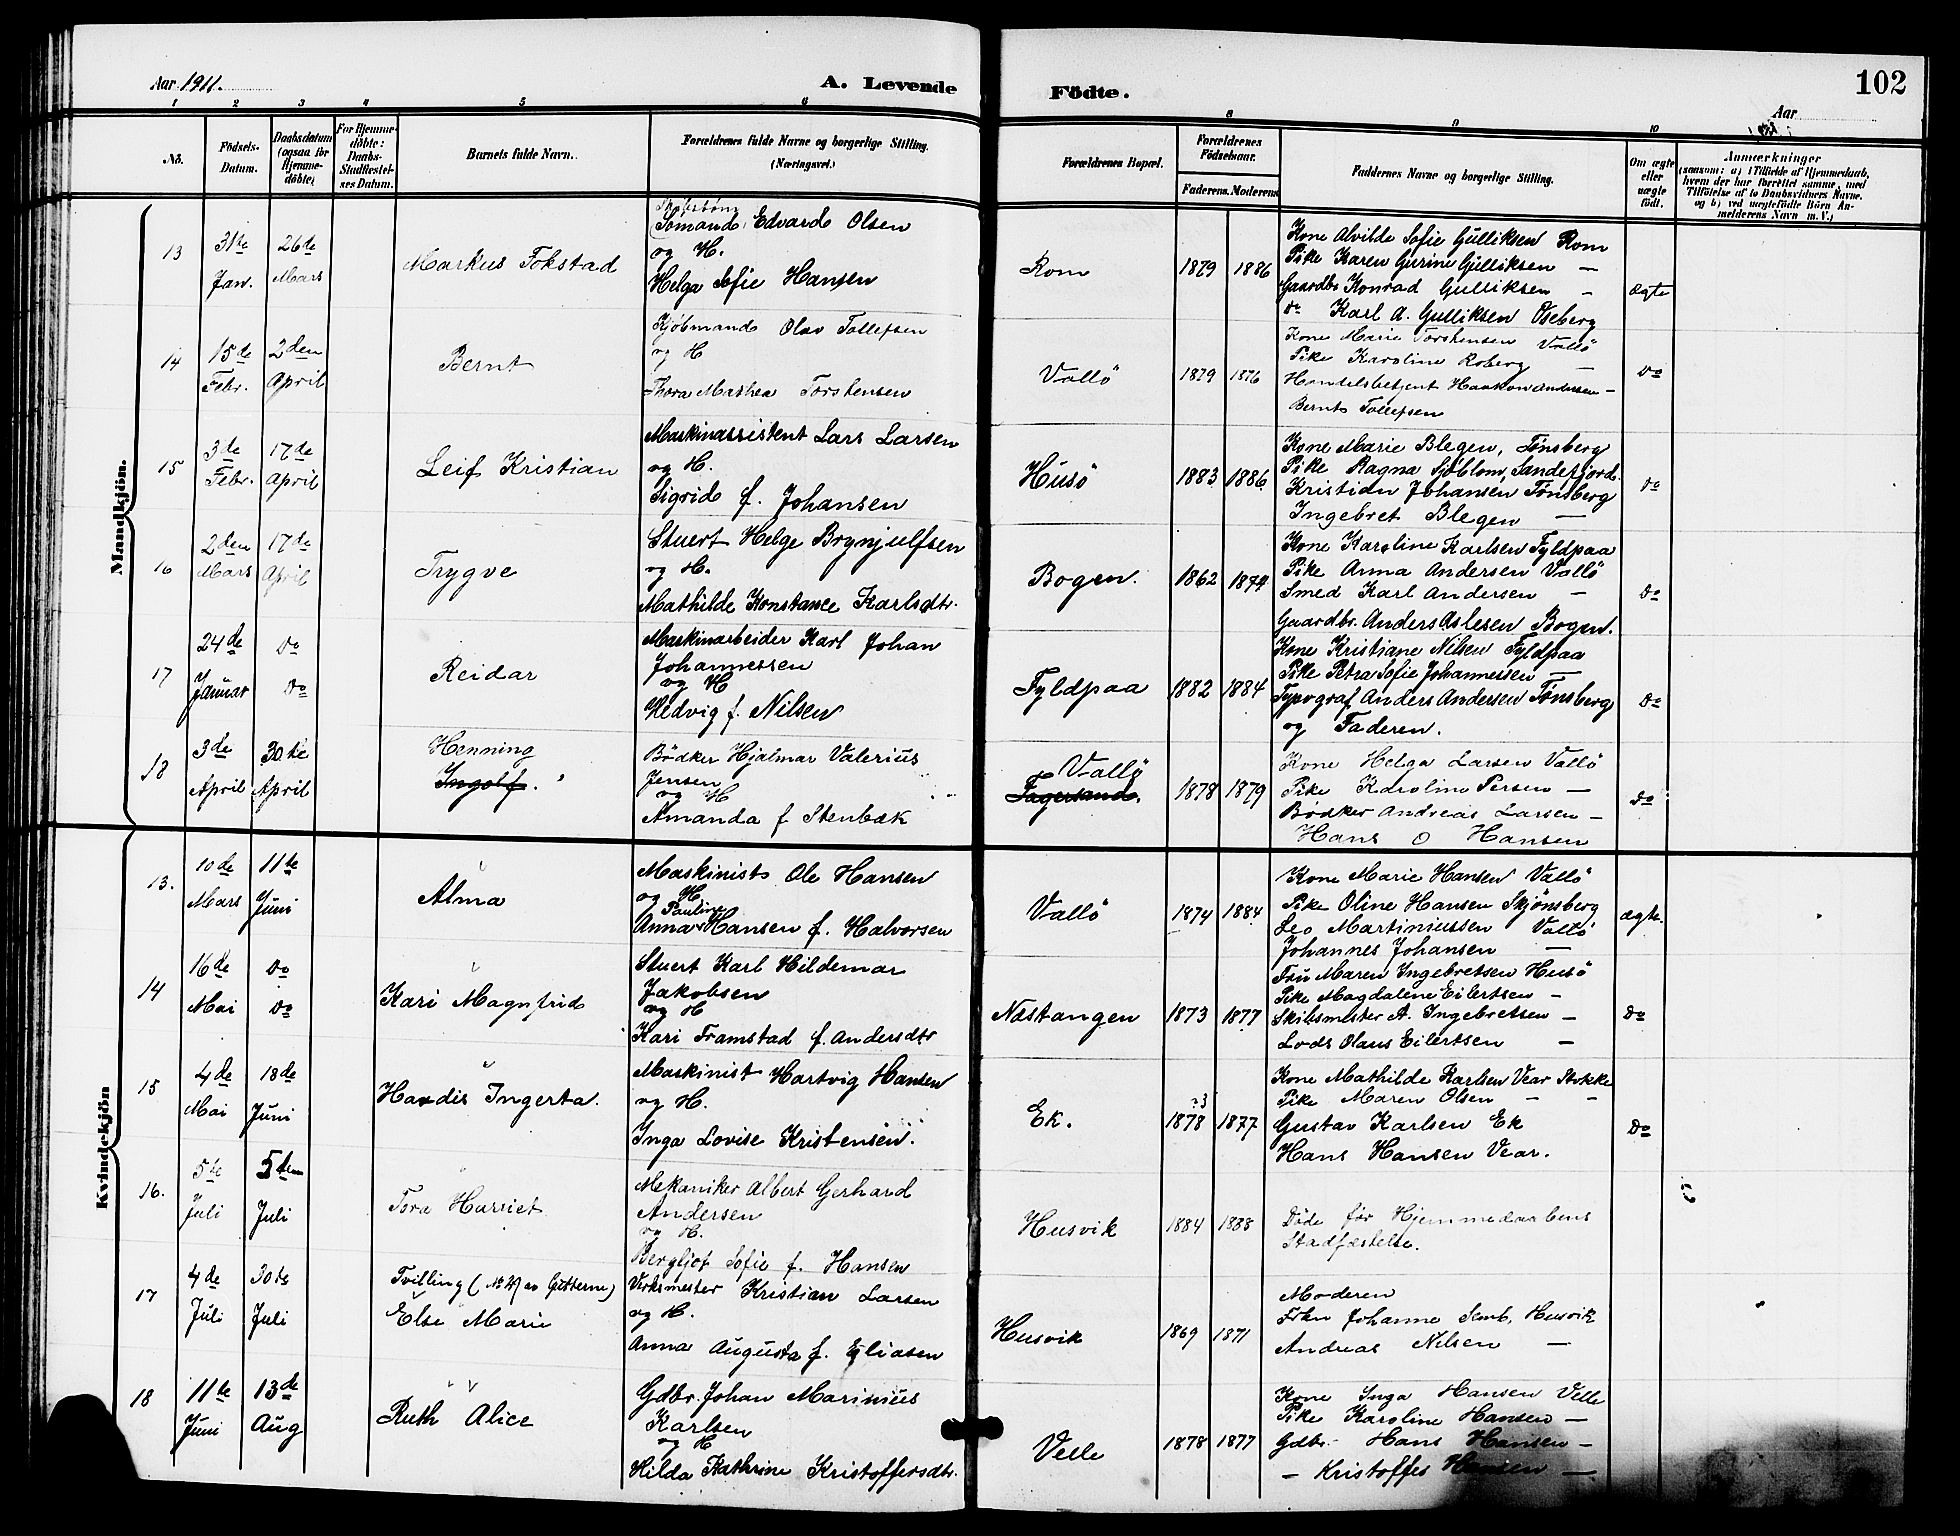 Aar 1911.
A. Levende
Födte.
102
Aar
1 2 3 4 5 6 8 9 10
No.
Födsels-Datum.
Daabsdatum (ogsaa for Hjemme-döbte)
For Hjemme-döbte: Daabs-Stadfæstel-ses Datum.
Barnets fulde Navn.
Forældrenes fulde Navne og borgerlige Stilling. (Næringsvei.)
Forældrenes Bopæl.
Forældrenes Födselsaar.
Faderens. Moderens
Faddernes Navne og borgerlige Stilling.
Om ægte eller uægte födt.
Anmærkninger
(saasom: a) i Tilfælde af Hjemmedaab, hvem der har forrettet samme, med Tilföielse af to Daabsvidners Navne, og b) ved uægtefödte Börn An-melderens Navn m. V.)
Mandkjön.
13
31te Jan.
26de Mars
Markus Fokstad
Sømand Edvard Olsen
og H.
Helga Sofie Hansen
Rom
1879 1886
Kone Alvilde Sofie Gulliksen Rom
Pike Karen Gurine Gulliksen —
Gaardbr Konrad Gulliksen -
do Karl A. Gulliksen Oseberg
Ægte
14
15de Febr.
2den April
Bernt
Kjøbmand Olav Tollefsen
og H
Thora Mathea Torstensen
Vallö
1879 1876
Kone Marie Torstensen Vallö
Pike Karoline Roberg —
Handelsbetjent Haakon Andersen —
Bernt Tollefsen
do
15
3de Febr.
17de April
Leif Kristian
Maskinassistent Lars Larsen
og H.
Sigrid f. Johansen
Husö
1883 1886
Kone Marie Blegen, Tønsberg
Pike Ragna Sjöblom, Sandefjord.
Kristian Johansen Tønsberg
Ingebret Blegen —
do
16
2den Mars
17de April
Trygve
Stuert Helge Brynjulfsen
og H.
Mathilde Konstance Karlsdtr.
Bogen.
1862 1874
Kone Karoline Karlsen Fyldpaa
Pike Anna Andersen Vallö
Smed Karl Andersen -
Gaardbr. Anders Aslesen Bogen.
do
17
24de Januar
do do
Reidar
Maskinarbeider Karl Johan
Johannessen
og H
Hedvig f. Nilsen
Fyldpaa
1882 1884
Kone Kristiane Nilsen Fyldpaa
Pike Petra Sofie Johannessen —
Typograf Anders Andersen Tønsberg
og Faderen.
do
18
3de April
30te April
Henning
Ingolf.
Bödker Hjalmar Valerius
Jensen
og H
Amanda f Stenbæk
Vallö
Fagersand.
1878 1879
Kone Helga Larsen Vallö
Pike Karoline Persen —
Bödker Andreas Larsen -
Hans O Hansen
do
Kvindekjön
13.
10de Mars
11te Juni
Alma
Maskinist Ole Hansen
og H.
Pauline
Anna Hansen f. Halvorsen
Vallö
1874 1884
Kone Marie Hansen Vallö
Pike Oline Hansen Skjönsberg
Leo Martiniussen Vallö
Johannes Johansen —
ægte.
14
16de Mai
do do
Kari Magnfrid
Stuert Karl Hildemar
Jakobsen
og H
Kari Framstad f. Andersdtr
Næstangen
1873 1877
Fru Maren Ingebretsen Husö
Pike Magdalene Eilertsen -
Skibsmester A. Ingebretsen —
Lods Olaus Eilertsen —
do
15
4de Mai
18de Juni
Hardis Ingerta.
Maskinist Hartvig Hansen
og H.
Inga Lovise Kristensen.
Ek.
1878 1877
Kone Mathilde Karlsen Vear Stokke
Pike Maren Olsen - -
Gustav Karlsen Ek
Hans Hansen Vear.
do
16.
5te Juli
5te Juli
Tora Harriet
Mekaniker Albert Gerhard
Andersen
og H.
Bergljot Sofie f. Hansen
Husvik
1884 1888
Döde för Hjemmedaabens
Stadfæstelse.
17
4de Juli
30te Juli
Tvilling (No 24 av Gutterne)
Else Marie
Verksmester Kristian Larsen
og H.
Anna Augusta f. Eliasen
Husvik
1869 1871
Moderen
Frkn Johanne Semb, Husvik
Andreas Nilsen —
18
11te Juni
13de Aug
Ruth Alice
Gdbr. Johan Marinius
Karlsen
og H
Hilda Kathrine Kristoffersdtr.
Velle
1878 1877
Kone Inga Hansen Velle
Pike Karoline Hansen —
Gdbr. Hans Hansen —
— Kristoffer Hansen —